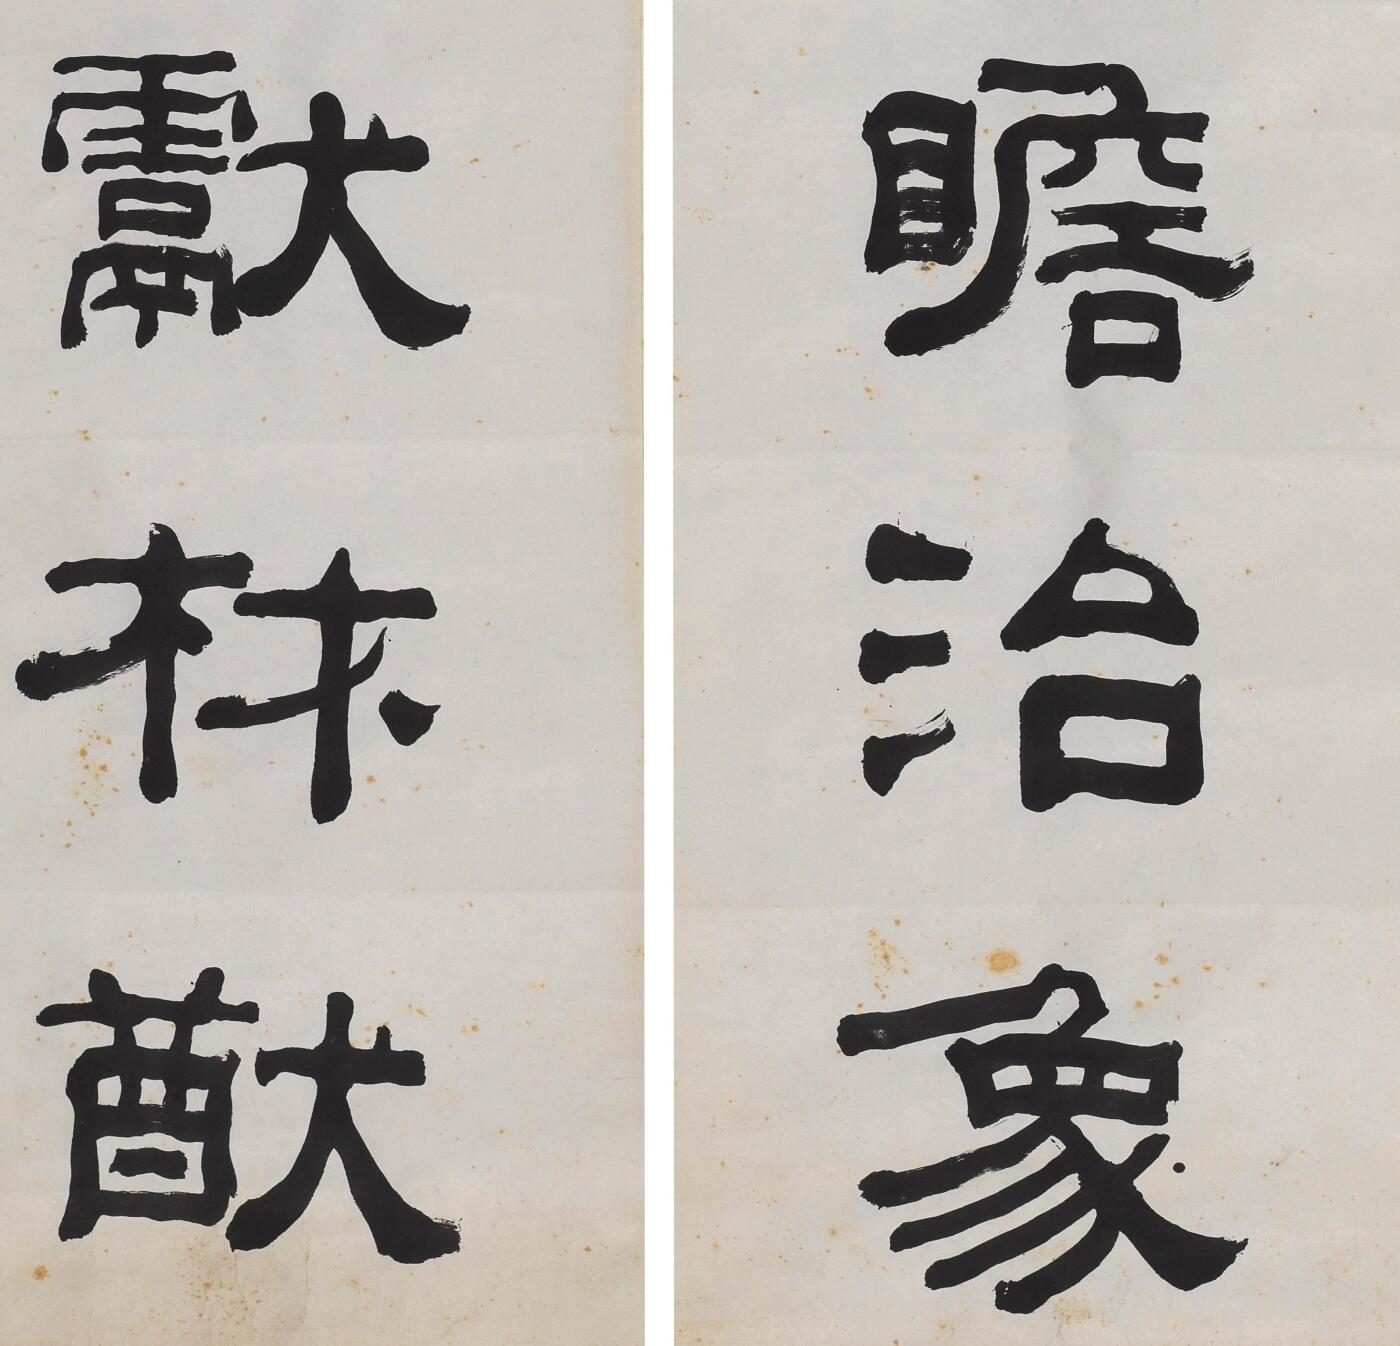 瞻治象
獻林猷